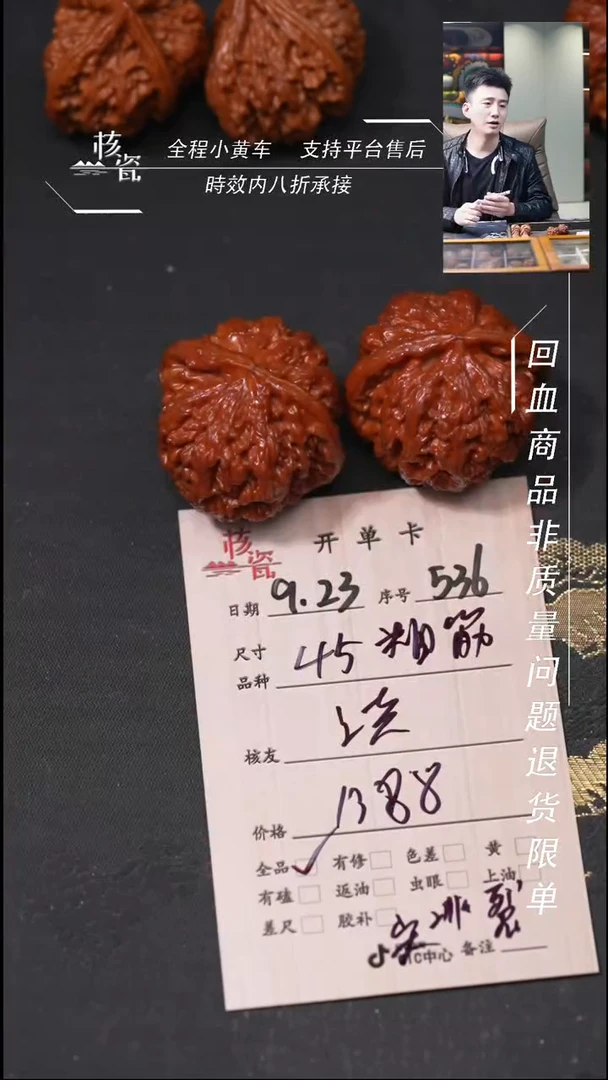 核瓷
全程小黄车 支持平台售后
時效内八折承接
回血商品非质量问题退货限单
核瓷
开单卡
日期 9.23 序号 536
尺寸
品种 45粗筋
核友
价格 1388
全品 有修 色差 黄
有磕 返油 虫眼 上油
差尺 胶补
IC中心 备注